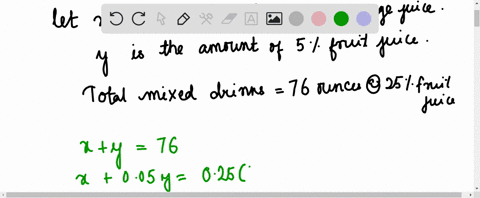 let x ge juice.
y is the amount of 5% fruit juice.
Total mixed drinks = 76 ounces @ 25% fruit
juice
x + y = 76
x + 0.05y = 0.25(